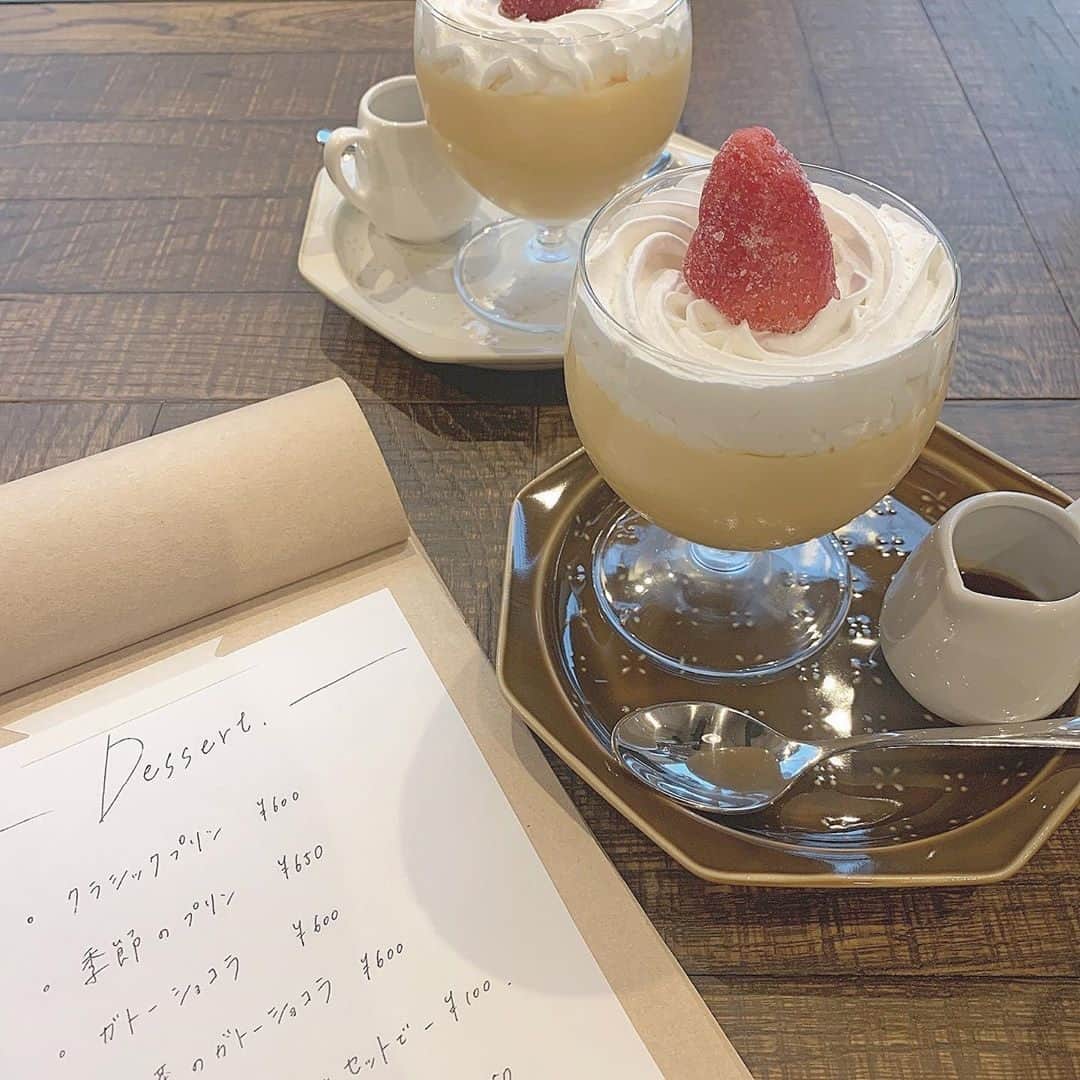 Dessert.
。 クラシックプリン ¥600
。 季節のプリン ¥650
。 ガトーショコラ ¥600
のガトーショコラ ¥600
セットでー¥100.